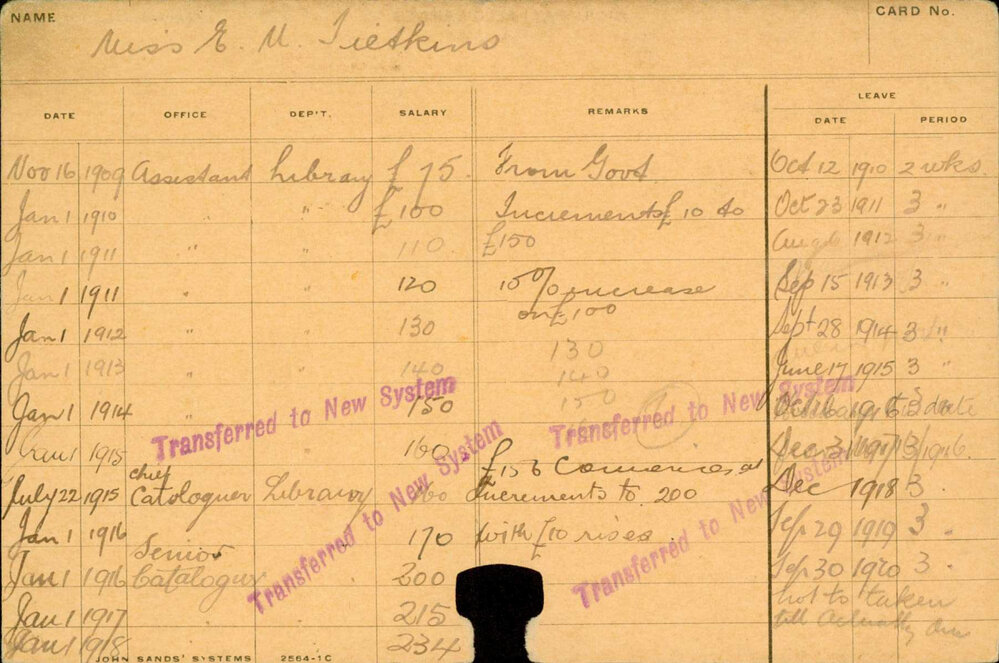 NAME
CARD No.
Miss E. M. Tietkins
LEAVE
DATE OFFICE DEP'T. SALARY REMARKS DATE PERIOD
Nov 16 1909 Assistant Library £ 75. From Govt Oct 12 1910 2 wks.
Jan 1 1910 " " £100 Increments £10 to Oct 23 1911 3 "
Jan 1 1911 " 110 £150 1912 3 "
Jan 1 1911 " 120 10% increase Sep 15 1913 3 "
on £100
Jan 1 1912 " 130 Sept 28 1914 3 "
130
Jan 1 1913 " 140 140 June 17 1915 3 "
Jan 1 1914 " 150 150 Oct 16 1916 3 date
Transferred to New System
Transferred to New System
Jan 1 1915 " 160 Dec 31 1917 3 /1916.
Chief £156 Commences at
July 22 1915 Cataloguer Library 160 Increments to 200 Dec 1918 3.
Transferred to New System
Transferred to New System
Jan 1 1916 170 with £10 rises. Sep 29 1919 3 "
Senior
Jan 1 1916 Cataloguer 200 Sep 30 1920 3 "
not to taken
Jan 1 1917 " 215 till Actually due
Jan 1 1918 " 234
JOHN SANDS' SYSTEMS 2564-1C